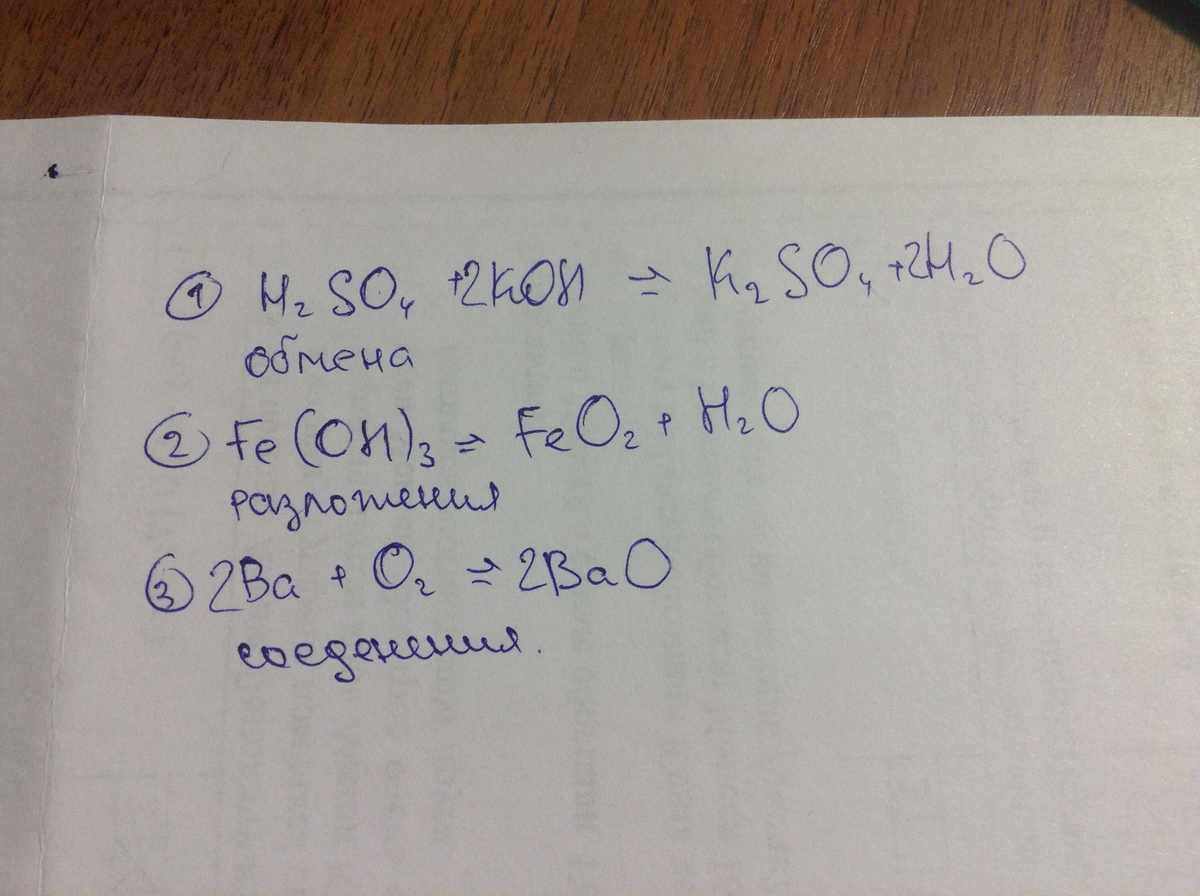 ① H₂SO₄ +2KOH ⇒ K₂SO₄ +2H₂O
обмена
② Fe(OH)₃ ⇒ FeO₂ + H₂O
разложения
③ 2Ba + O₂ ⇒ 2BaO
соеденения.